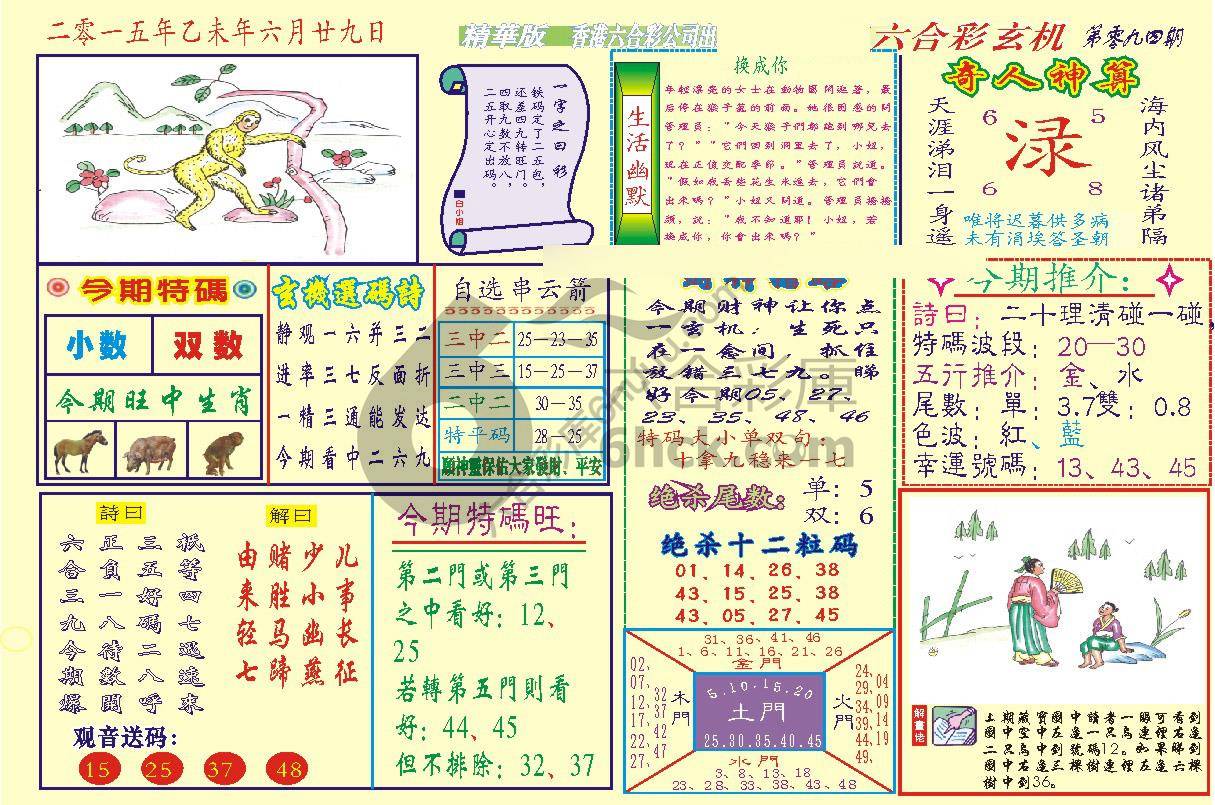 二零一五年乙未年六月廿九日
精華版 香港六合彩公司出
六合彩玄机 第零九四期
一字之曰 彩
铁码定了二五包,
还差四九转旺门。
四取九数不放八,
二五开心定出码。
白小姐
生活幽默
换成你
年轻漂亮的女士在動物園閒逛著,最
后停在猴子籠的前面。她很困惑的問
管理員:“今天猴子們都跑到哪兒去
了?”“它們回到洞里去了,小姐,
現在正值交配季節。”管理員説道。
“假如我丢些花生米進去,它們會
出来嗎?”小姐又問道。管理員搔搔
頭,説:“我不知道耶!小姐,若
换成你,你會出来嗎?”
奇人神算
天涯涕泪一身遥
海内风尘诸弟隔
6 5
渌
6 8
唯将迟暮供多病
未有涓埃答圣朝
今期特碼
小数 双数
今期旺中生肖
玄機選碼詩
静观一六并三二
进率三七反面折
一精三通能发达
今期看中二六九
自选串云箭
三中二 25—23—35
三中三 15—25—37
二中二 30—35
特平码 28—25
願神靈保佑大家發財、平安
今期财神让你点
一玄机:生死只
在一念间,抓住
放错三七九。睇
好今期05、27、
23、35、48、46
特码大小单双句:
十拿九稳来一七
绝杀尾数: 单:5
双:6
绝杀十二粒码
01、14、26、38
43、15、25、38
43、05、27、45
今期推介:
詩曰:二十理清碰一碰,
特碼波段:20—30
五行推介:金、水
尾數:單:3.7雙:0.8
色波:紅、藍
幸運號碼:13、43、45
詩曰
六合三九今期爆
正負一八待數開
三五好碼二八呼
祇等四七迅速来
解曰
由来轻七
赌胜马蹄
少小幽燕
儿事长征
观音送码:
15 25 37 48
今期特碼旺:
第二門或第三門
之中看好:12、
25
若轉第五門則看
好:44、45
但不排除:32、37
31、36、41、46
1、6、11、16、21、26
金門
02、07、12、17、22、27、
32、37、42、47
木門
5.10.15.20
土門
25.30.35.40.45
火門
24、29、34、39、44、49、
04、09、14、19
水門
3、8、13、18
23、28、33、38、43、48
解畫佬
上期藏寳圖中讀者一眼可看到
圖中空中左邊一只鳥連裡右邊
二只鳥中到號碼12。如果睇到
圖中右邊三棵樹連裡左邊六棵
樹中到36。
六合彩庫
6hck.com